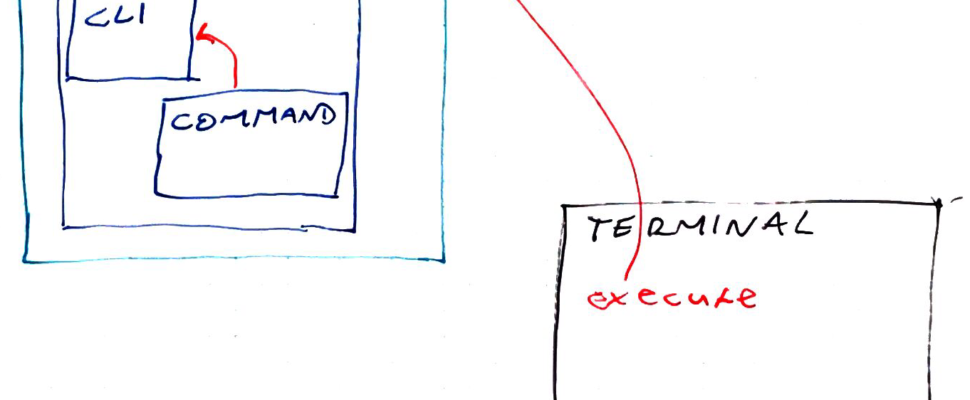 CLI
COMMAND
TERMINAL
execute